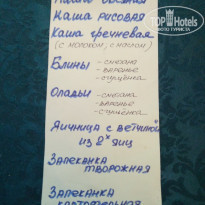 TopHotels
Каша рисовая
Каша гречневая
(с молоком, с маслом)
Блины - сметана
- варенье
- сгущёнка
Оладьи - сметана
- варенье
- сгущёнка
Яичница с ветчиной
из 2х яиц
Запеканка
творожная
Запеканка
картофельная